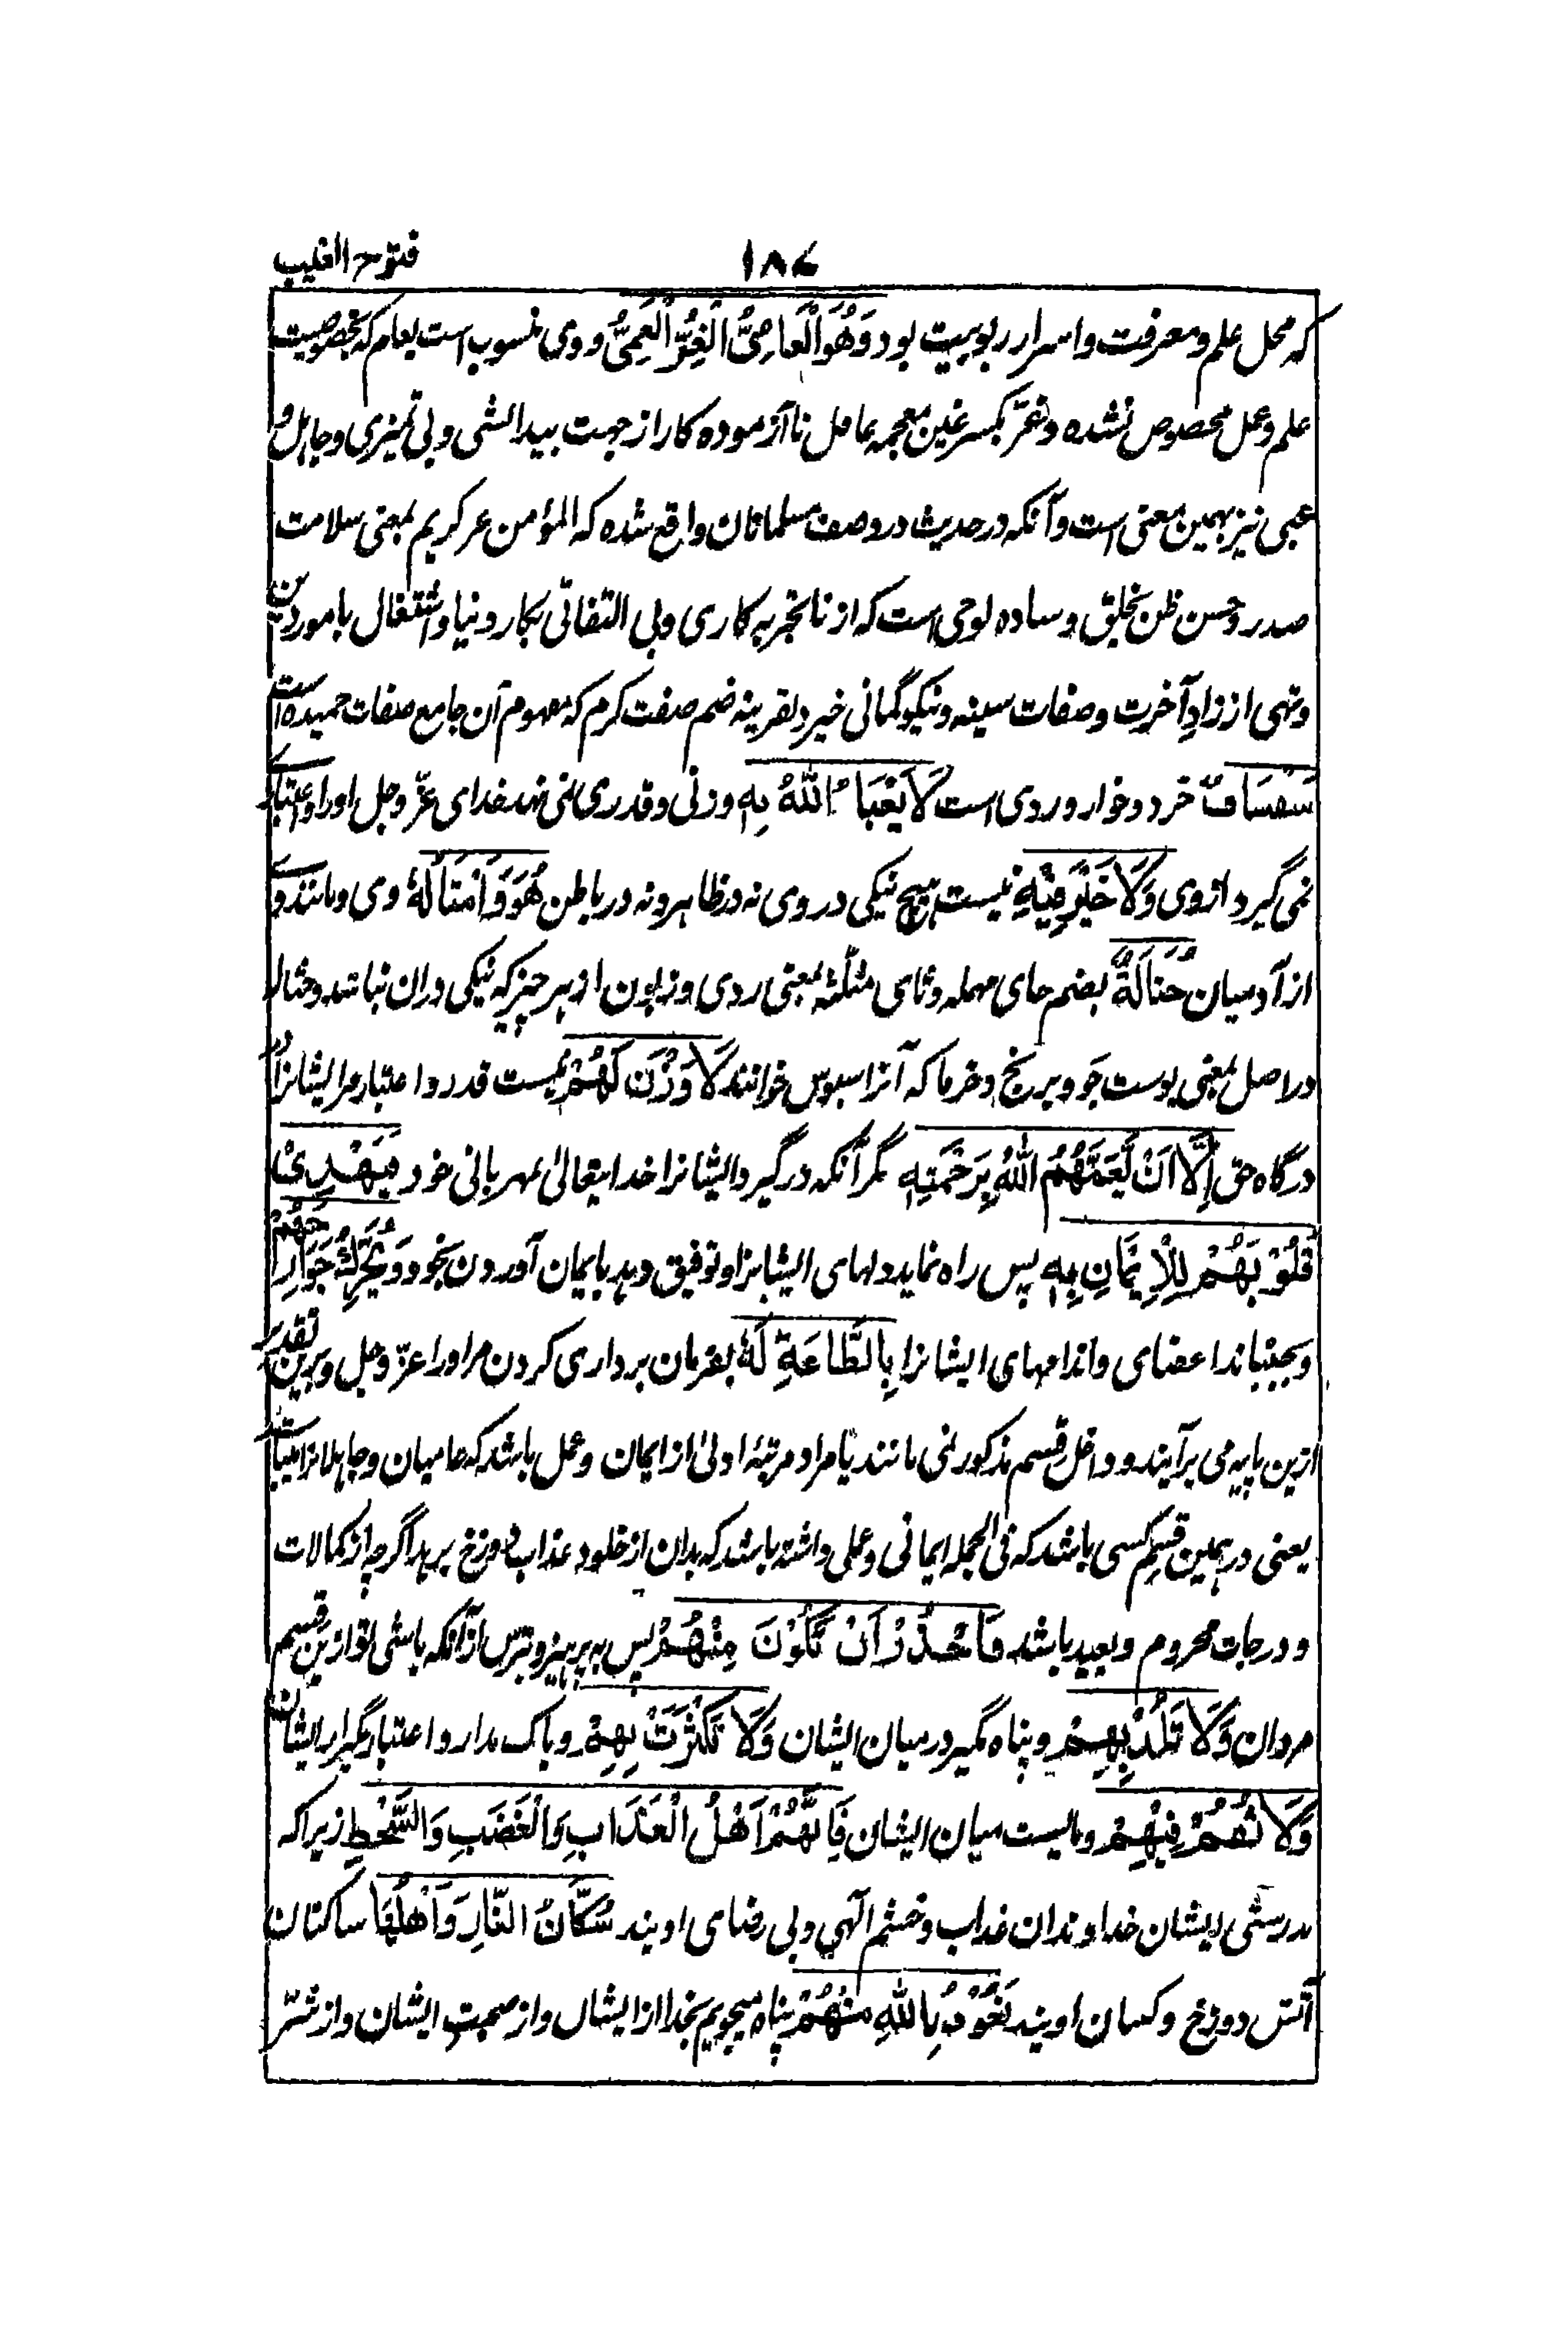 فتوح الغیب
۱۸۷
که محل علم و معرفت و اسرار ربوبیت بود وَهُوَ الْعَاصِیُّ الْغِرُّ الْعَمِیُّ و وی منسوب است بعام که بخصوصیت
علم و عمل مخصوص نشده و غرّ بکسر غین معجمه عامل ناآزموده کار از جهت بیدانشی و بی تمیزی و جاهل و
عمی نیز بهمین معنی است و آنکه در حدیث در وصف مسلمانان واقع شده که المؤمن غر کریم بمعنی سلامت
صدر و حسن ظن بخلق و ساده لوحی است که از ناتجربه کاری و بی التفاتی بکار دنیا و اشتغال بامور دین
و تهی از زادِ آخرت و صفات سینه و نیکو گمانی خیزد بقرینه ضم صفت کرم که مفهوم آن جامع صفات حمیده است
سَفْسَافٌ خرد و خوار و ردی است لَا یَعْبَاءُ اللّٰهُ بِهٖ وزنی و قدری نمی نهد خدای عزّ و جل او را و اعتبار
نمی گیرد از وی وَلَا خَیْرَ فِیْهِ نیست هیچ نیکی در وی نه در ظاهر و نه در باطن هُوَ وَ اَمْثَالُهٗ وی و مانند وی
از آدمیان حُثَالَةٌ بضم حای مهمله و ثای مثلثه بمعنی ردی و زبون از هر چیز که نیکی دران نباشد و حثاله
در اصل بمعنی پوست جو و برنج و خرما که آنرا سبوس خوانند لَا وَزْنَ لَهُمْ نیست قدر و اعتبار مر ایشانرا در
درگاه حق اِلَّا اَنْ یَّعُمَّهُمُ اللّٰهُ بِرَحْمَتِهٖ مگر آنکه درگیرد ایشانرا خدایتعالیٰ بمهربانی خود فَیَهْدِیْ
قُلُوْبَهُمْ لِلْاِیْمَانِ بِهٖ پس راه نماید دلهای ایشانرا و توفیق دهد بایمان آوردن بخود وَ یُحَرِّكَ جَوَارِحَهُمْ
و بجنباند اعضای و اندامهای ایشانرا بِالطَّاعَةِ لَهٗ بفرمان برداری کردن مر او را عزّ و جل و برین تقدیر
ازین پایه می برآیند و داخل قسم مذکور نمی مانند یا مراد مرتبهٔ اولیٰ از ایمان و عمل باشد که عامیان و جاهلانرا میباشد
یعنی در همین قسم کسی باشد که فی الجمله ایمانی و عملی داشته باشد که بدان از خلود عذاب دوزخ برهد اگرچه از کمالات
و درجات محروم و بعید باشد فَاحْذَرْ اَنْ تَكُوْنَ مِنْهُمْ پس به پرهیز و بترس ازآنکه باشی تو ازین قسم
مردان وَلَا تَلُذْ بِهِمْ و پناه مگیر در میان ایشان وَلَا تَكْتَرِثْ بِهِمْ و باک مدار و اعتبار مگیر از ایشان
وَلَا تَقُمْ فِیْهِمْ و مایست میان ایشان فَاِنَّهُمْ اَهْلُ الْعَذَابِ وَالْغَضَبِ وَالسَّخْطِ زیرا که
بدرستی ایشان خداوندان عذاب و خشم آلهی و بی رضای اویند سُكَّانُ النَّارِ وَاَهْلُهَا ساکنان
آتش دوزخ و کسان اویند نَعُوْذُ بِاللّٰهِ مِنْهُمْ پناه میجویم بخدا از ایشان و از صحبت ایشان و از شرّ